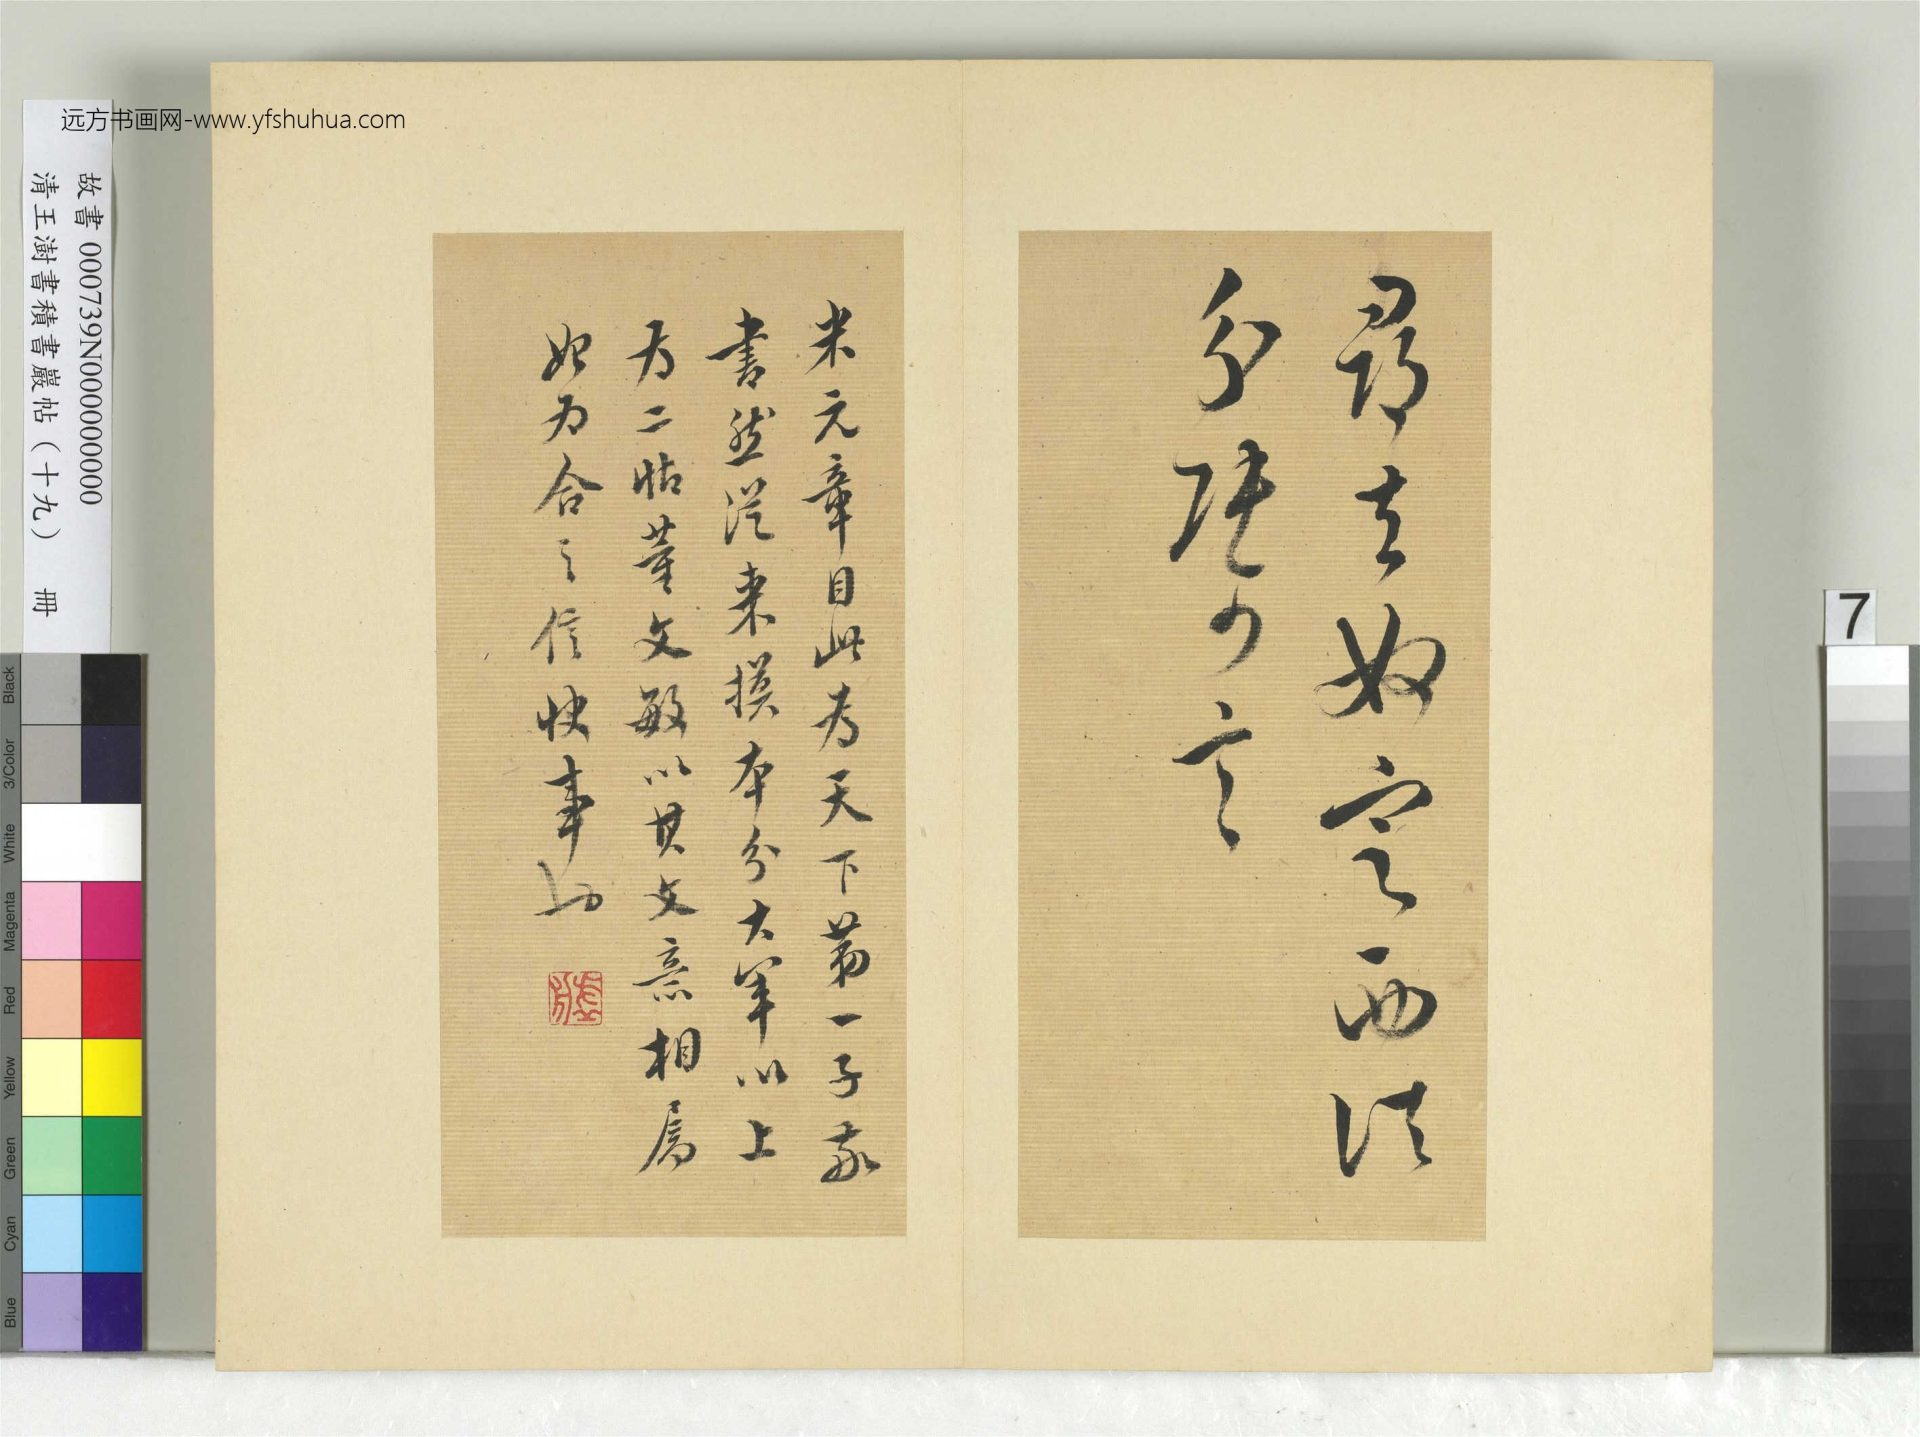 尋去奴定西諸
分張少言
米元章目此為天下第一子敬
書然從來摸本分大軍以上
為二帖董文敏以其文意相屬
始為合之信快事也
虛舟
远方书画网-www.yfshuhua.com
故書 000739N000000000
清王澍書積書巖帖（十九） 冊
7
Black
3/Color
White
Magenta
Red
Yellow
Green
Cyan
Blue